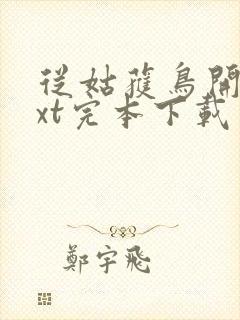 從姑獲鳥開
xt完本下載
鄭宇飛